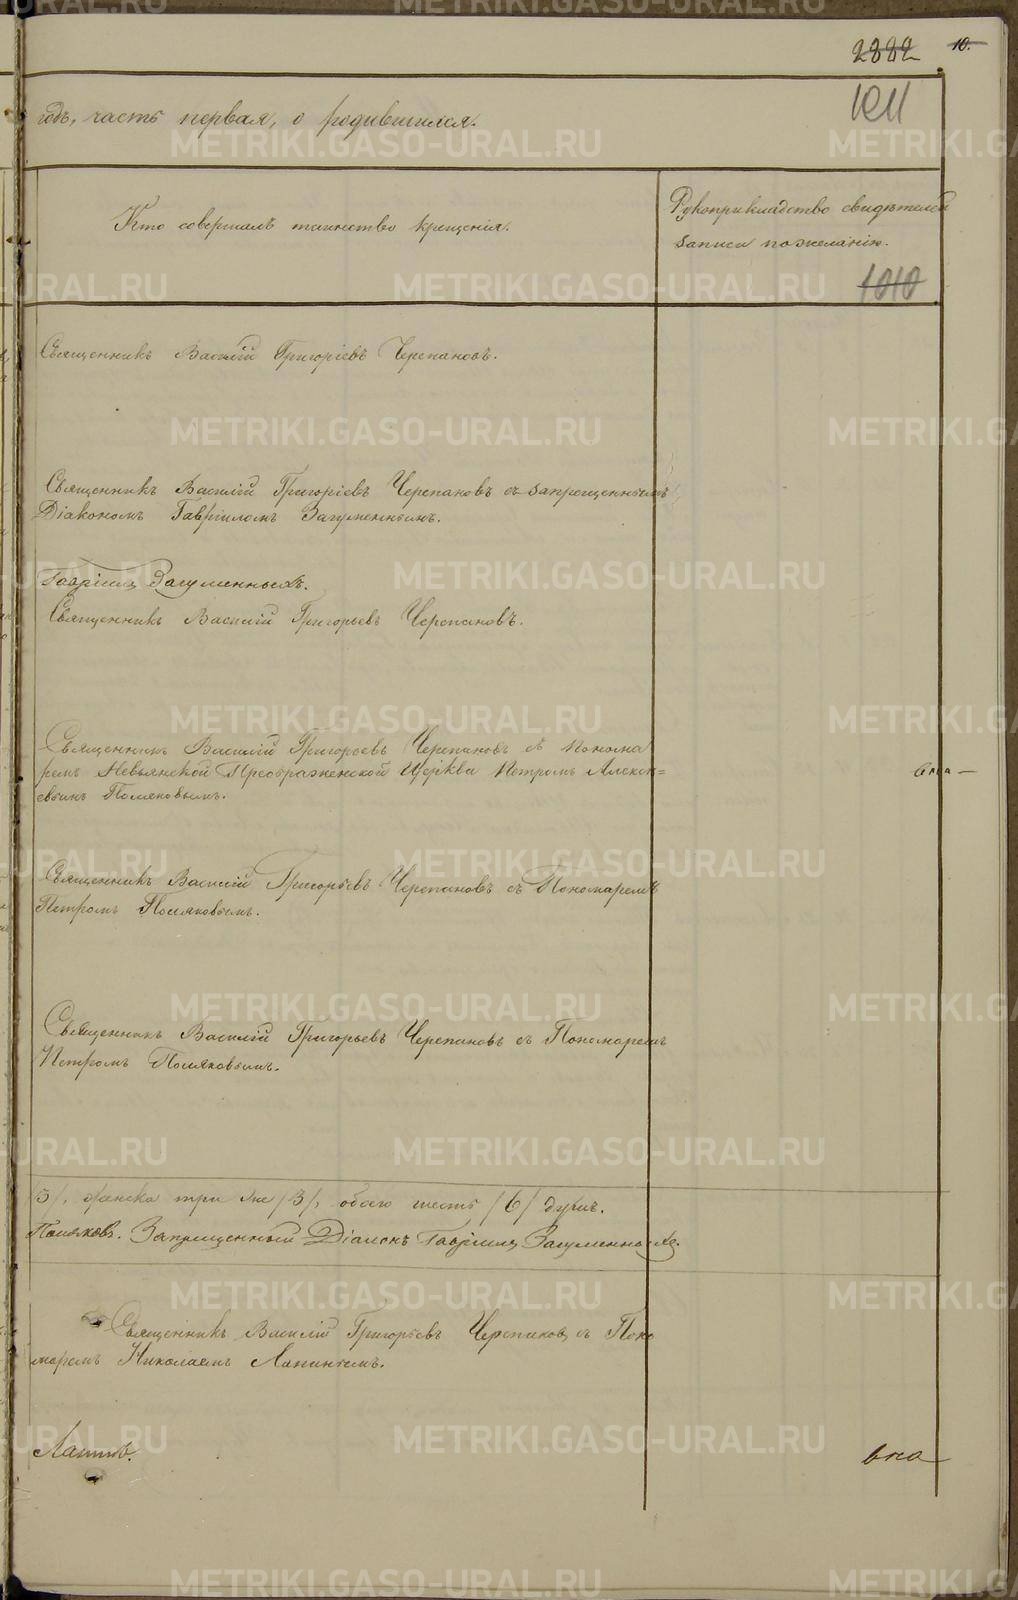 2882 10.
1011
годъ, часть первая, о родившихся.
Кто совершалъ таинство крещенія.
Рукоприкладство свидѣтелей
записи по желанію.
1010
Священникъ Василій Григоріевъ Черепановъ.
Священникъ Василій Григоріевъ Черепановъ съ запрещеннымъ
Діакономъ Гавріиломъ Загуменнымъ.
Гавріилъ Загуменныхъ.
Священникъ Василій Григорьевъ Черепановъ.
Священникъ Василій Григорьевъ Черепановъ съ Понома
ремъ Невьянской Преображенской Церкви Петромъ Алексѣ=
евымъ Поляковымъ.
Священникъ Василій Григорьевъ Черепановъ съ Пономаремъ
Петромъ Поляковымъ.
Священникъ Василій Григорьевъ Черепановъ съ Пономаремъ
Петромъ Поляковымъ.
/3/, женска три же /3/, обоего шесть /6/ душъ.
Поляковъ. Запрещенный Діаконъ Гавріилъ Загуменныхъ.
Священникъ Василій Григорьевъ Черепановъ съ Поно
маремъ Николаемъ Лапинымъ.
Лапинъ.
METRIKI.GASO-URAL.RU